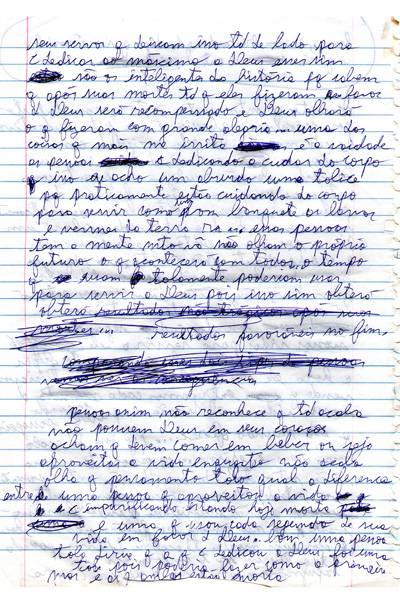 seus servos q deixam isso td de lado para
c dedicar ao máximo a Deus esses sim
são os inteligentes da história pq sabem
q após suas mortes td q eles fizeram em favor
d Deus será recompensado e Deus olhará
o q fizeram com grande alegria... uma das
coisas q mais me irrita é a vaidade
as pessoas c dedicando a cuidar do corpo
q isso eu acho um absurdo uma tolice
pq praticamente estão cuidando do corpo
para servir como bom banquete as larvas
e vermes da terra essas pessoas
tem a mente mto vã não olham o próprio
futuro o q acontecerá com todos, o tempo
q usam tolamente poderiam usar
para servir a Deus pois isso sim obterá
obterá resultados não trágicos após suas
mortes... resultados favoráveis no fim
comparando esses dois tipos de pessoas
vamos ver a consequência
pessoas assim não reconhece q td acaba
não possuem Deus em seus corações
acham q devem comer em beber ou seja
aproveitar a vida enquanto não acaba
olha q pensamento tolo qual a diferença
entre uma pessoa q aproveitou a vida
c estando hoje morta
e uma q usou cada segundo de sua
vida em favor d Deus. bom uma pessoa
tola diria q a q c dedicou a Deus foi uma
tola pois poderia fazer como a primeira
mas e as 2 estão morta